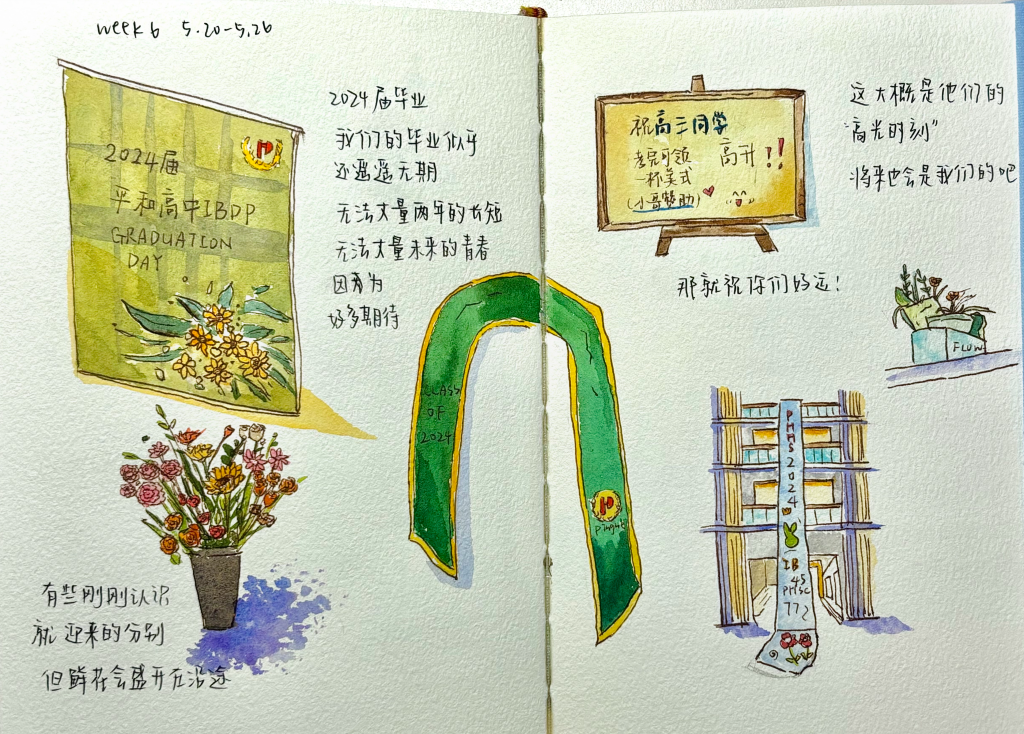 week 6 5.20-5.26
2024届
平和高中IBDP
GRADUATION
DAY
2024届毕业
我们的毕业似乎
还遥遥无期
无法丈量两年的长短
无法丈量未来的青春
因着为
好多期待
CLASS
OF
2024
P
Pinghe
有些刚刚认识
就迎来的分别
但鲜花会盛开在沿途
祝高三同学
考完可领
一杯美式
(小哥赞助)
高升!!
这大概是他们的
"高光时刻"
将来也会是我们的吧
那就祝你们好运!
FLOW
PHHS
2024
IB
45
PHSC
772